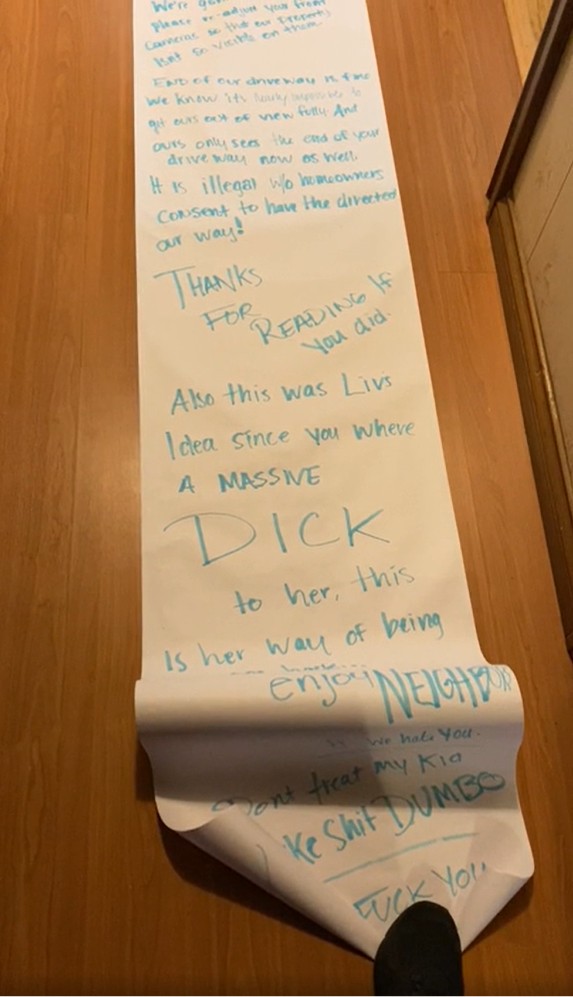 We're
Please re-adjust your front
cameras so that our property
isnt so visible on them.
End of our driveway is fine
We know its to
get ours out of view fully. And
ours only sees the end of your
driveway now as well.
It is illegal w/o homeowners
consent to have the directed
our way!
THANKS
FOR
READING If
You did.
Also this was Liv's
Idea since you where
A MASSIVE
DICK
to her, this
Is her way of being
enjoy NEIGHBOR
We hate You.
Dont treat my Kid
Ke Shit DUMBO
FUCK YOU